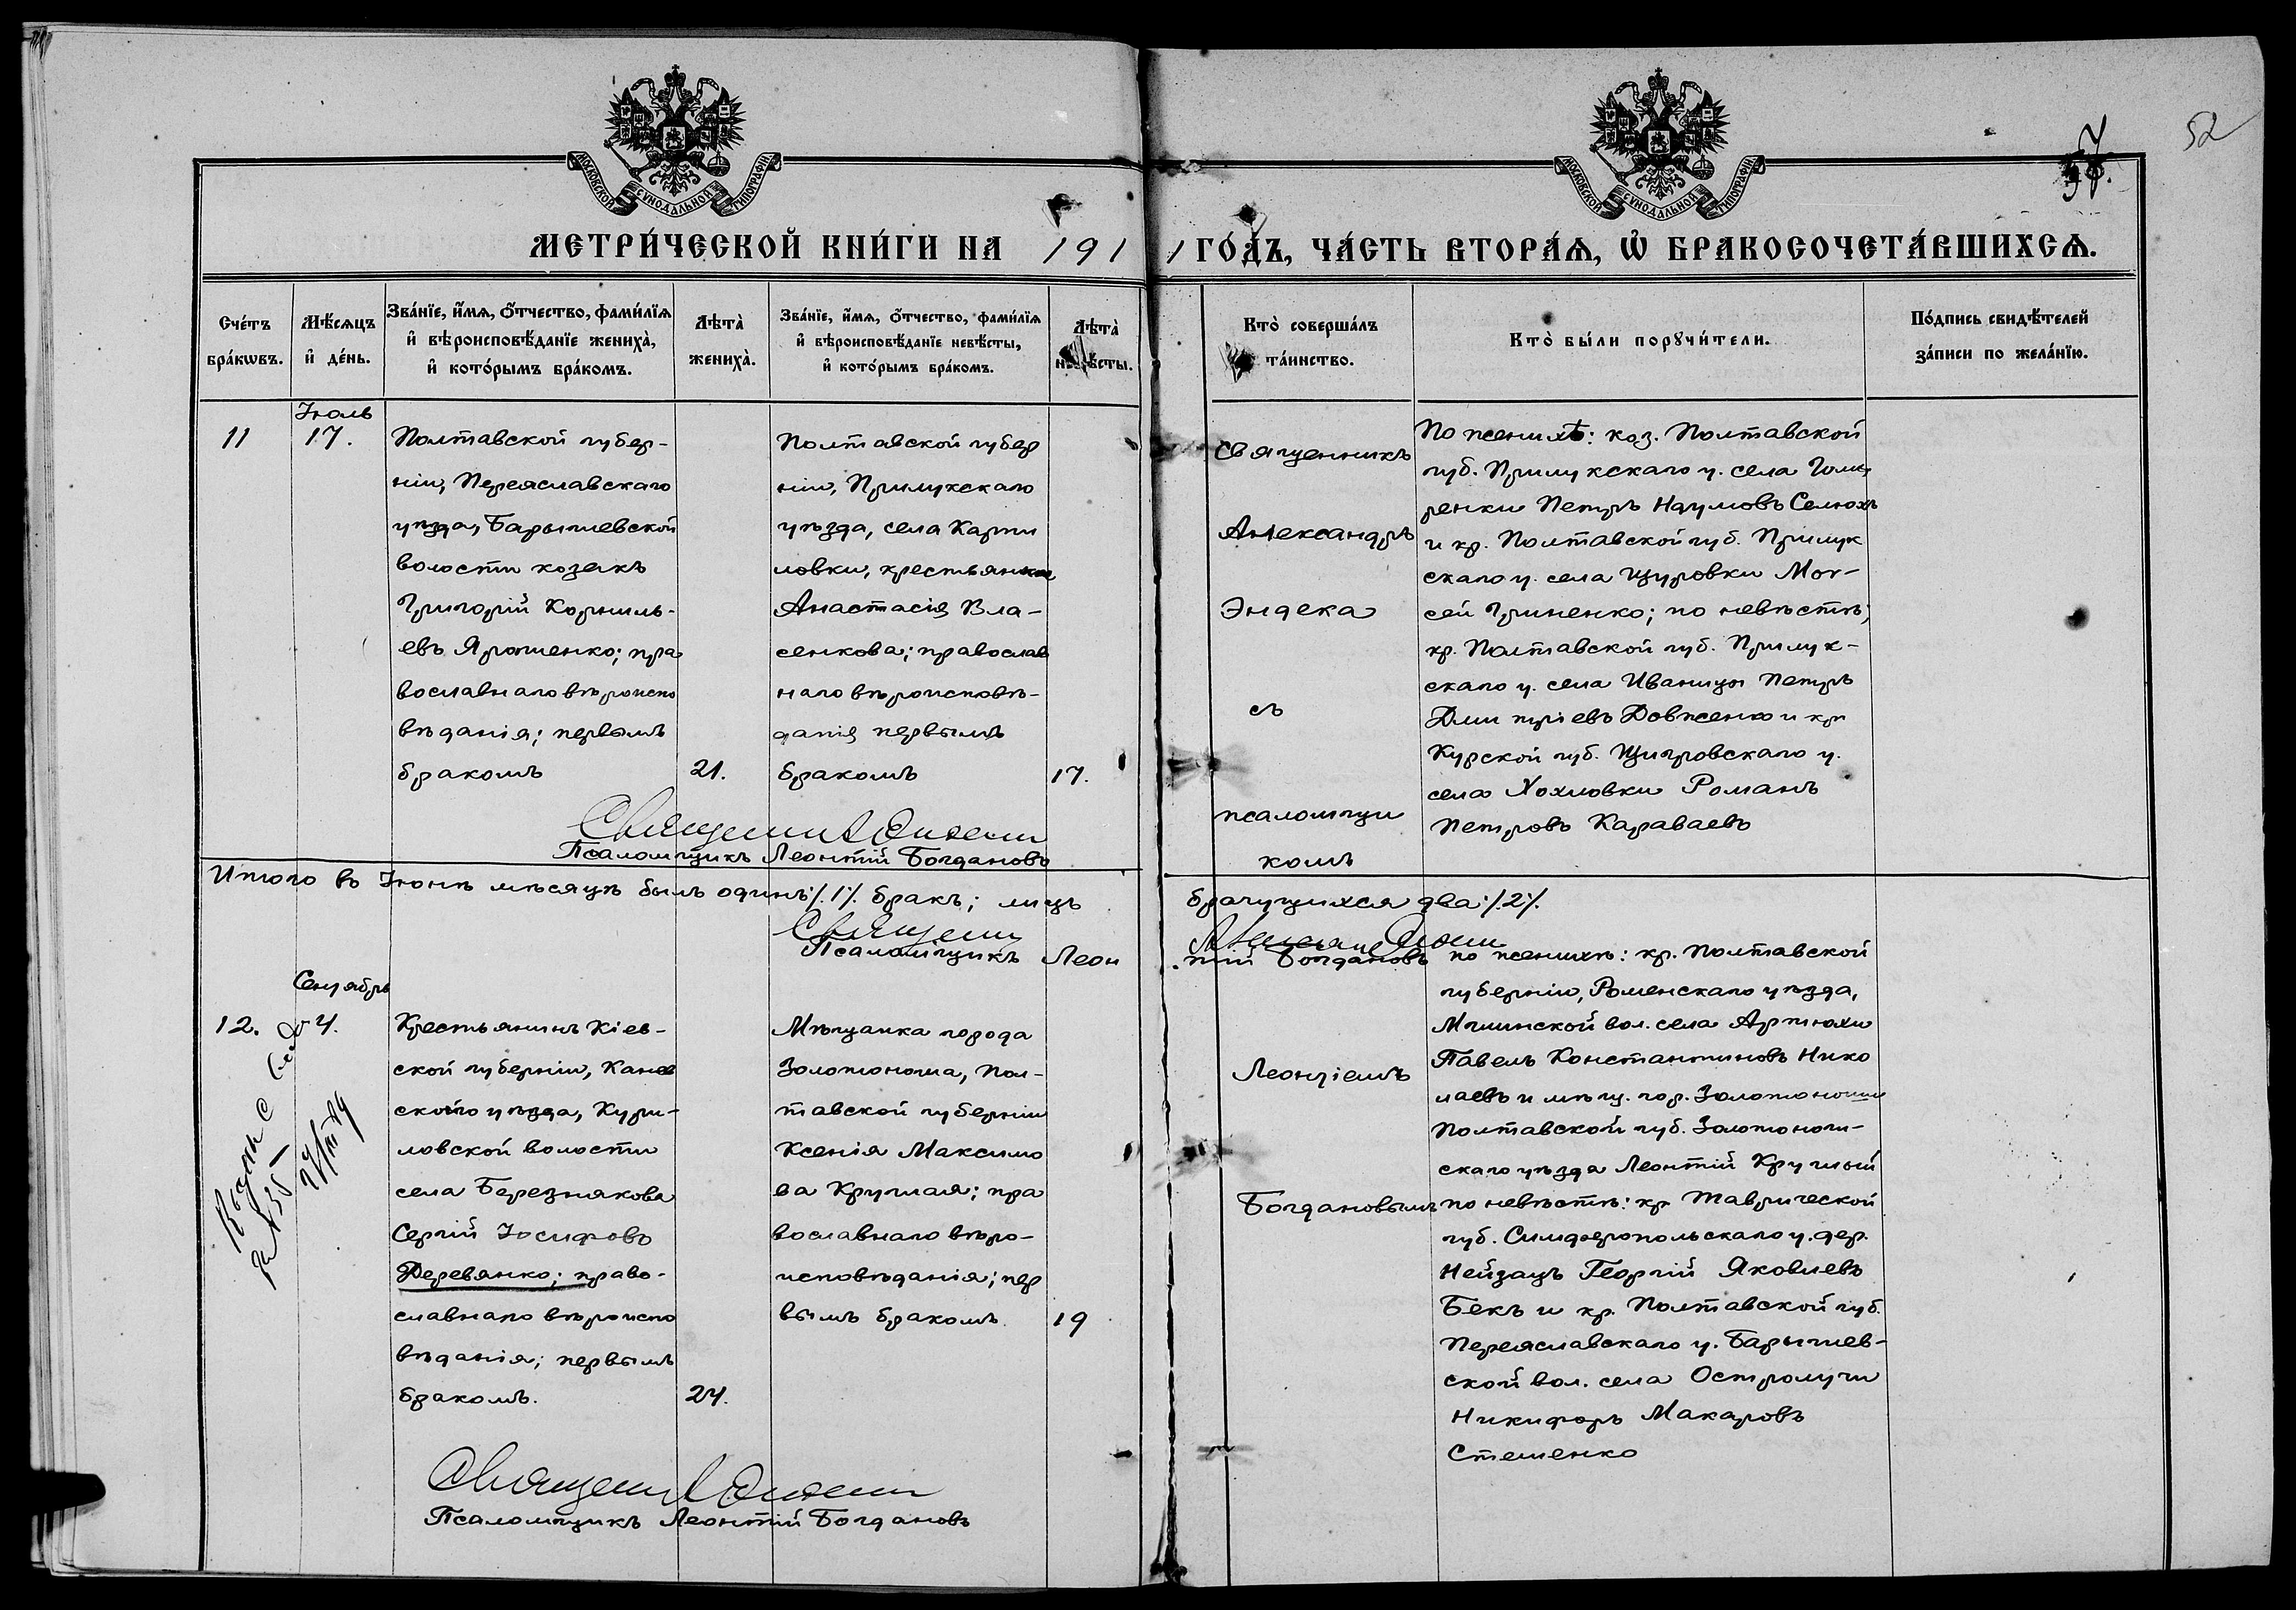 52
57.
МОСКОВСКОЙ СѴНОДАЛЬНОЙ ТИПОГРАФІИ
МОСКОВСКОЙ СѴНОДАЛЬНОЙ ТИПОГРАФІИ
МЕТРИ́ЧЕСКОЙ КНИ́ГИ НА 191
1 ГО́ДЪ, ЧА́СТЬ ВТОРА́Ѧ, Ѽ БРАКОСОЧЕТА́ВШИХСѦ.
Сче́тъ
бра́кѡвъ.
Мѣ́сѧцъ
и҆ де́нь.
Зва́нїе, и҆́мѧ, ѻ҆́тчество, фами́лїѧ
и҆ вѣроисповѣ́данїе жениха̀,
и҆ кото́рымъ бра́комъ.
Лѣта̀
жениха̀.
Зва́нїе, и҆́мѧ, ѻ҆́тчество, фами́лїѧ
и҆ вѣроисповѣ́данїе невѣ́сты,
и҆ кото́рымъ бра́комъ.
Лѣта̀
невѣ́сты.
Кто̀ соверша́лъ
та́инство.
Кто̀ бы́ли порꙋчи́тели.
По́дпись свидѣ́телей
за́писи по жела́нїю.
11
Іюль
17.
Полтавской губер-
ніи, Переяславскаго
уѣзда, Барышевской
волости козакъ
Григорій Корниль-
евъ Ярошенко; пра
вославнаго вѣроиспо
вѣданія; первымъ
бракомъ
21.
Полтавской губер
ніи, Прилукскаго
уѣзда, села Карпи
ловки, крестьянка
Анастасія Вла-
сенкова; православ
наго вѣроисповѣ-
данія первымъ
бракомъ
17.
Священникъ
Александръ
Эндека
съ
псаломщи
комъ
По женихѣ: коз. Полтавской
губ. Прилукскаго у. села
ренки Петръ Наумовъ Селюхъ
и кр. Полтавской губ. Прилук
скаго у. села Щуровки Мои-
сей Гриненко; по невѣстѣ;
кр. Полтавской губ. Прилук-
скаго у. села Иваницы Петръ
Дмитріевъ Довженко и кр
Курской губ. Щигровскаго у.
села Хохловки Романъ
Петровъ Караваевъ
Священникъ А Эндека
Псаломщикъ Леонтій Богдановъ
Итого въ Іюнѣ мѣсяцѣ былъ одинъ ⁒1⁒ бракъ; лицъ
брачущихся два ⁒2⁒
Священ
Александръ Эндека
Псаломщикъ Леон
тій Богдановъ
12.
Сентябрь
4.
Крестьянинъ Кіев-
ской губерніи, Канев
скаго уѣзда, Кури-
ловской волости
села Березнякова
Сергій Іосифовъ
Деревянко; право-
славнаго вѣроиспо
вѣданія; первымъ
бракомъ.
24.
Мѣщанка города
Золотоноша, Пол-
тавской губерніи
Ксенія Максимо
ва Круглая; пра
вославнаго вѣро-
исповѣданія; пер
вымъ бракомъ.
19
Леонтіемъ
Богдановымъ
по женихѣ: кр. Полтавской
губерніи, Роменскаго уѣзда,
вол. села Артюхи
Павелъ Константиновъ Нико
лаевъ и мѣщ. гор. Золотоноши
Полтавской губ. Золотонош-
скаго уѣзда Леонтій Круглый
по невѣстѣ: кр Таврической
губ. Симферопольскаго у. дер.
Нейзацъ Георгій Яковлевъ
Бекъ и кр. Полтавской губ.
Переяславскаго у. Барышев-
ской вол. села Остролучи
Никифоръ Макаровъ
Стеценко
Священникъ А Эндека
Псаломщикъ Леонтій Богдановъ